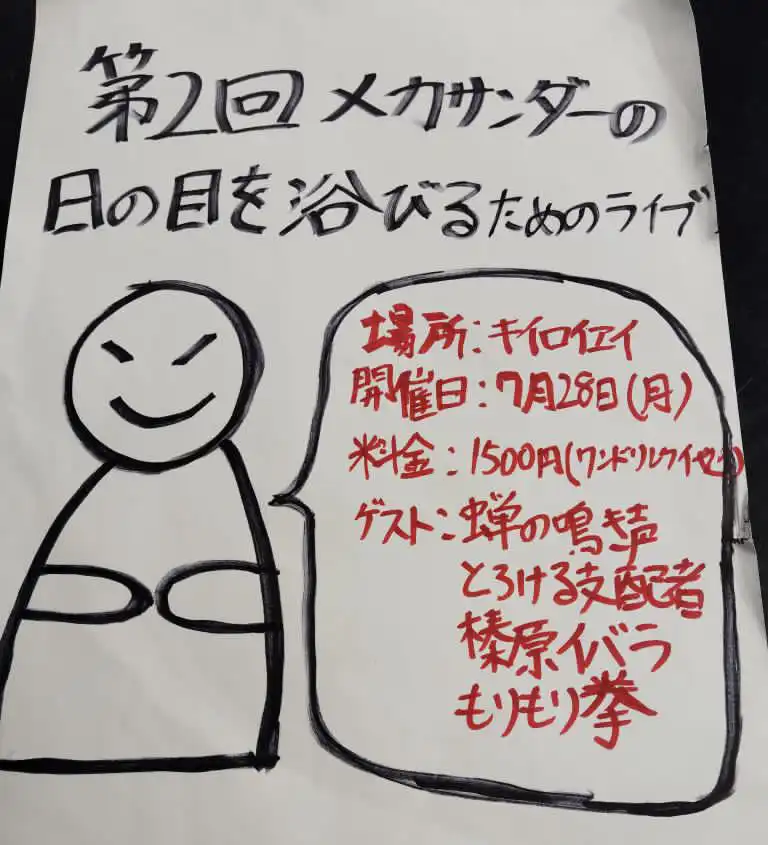 第2回メカサンダーの
日の目を浴びるためのライブ
場所:キイロイエイ
開催日:7月28日(月)
料金:1500円(ワンドリンク代込)
ゲスト:蝉の鳴き声
とろける支配者
榛原イバラ
もりもり拳